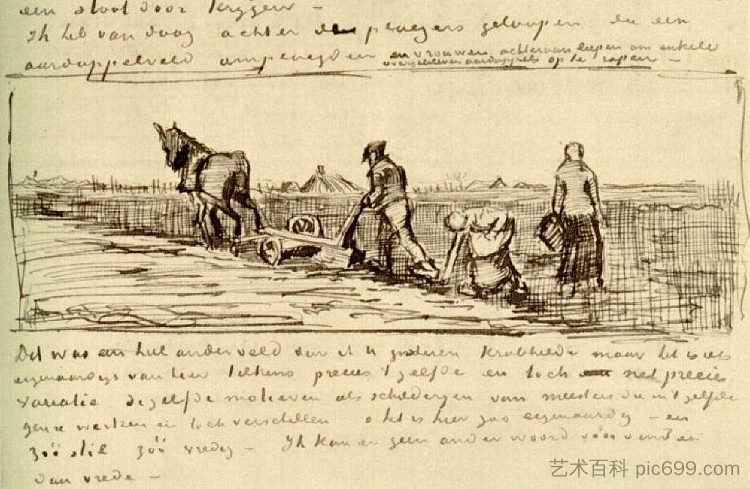 een door krijgen –
Ik heb van daag achter de ploegers geloopen die een
aardappelveld omploegden en vrouwen achteraan liepen om enkele
overgebleven aardappels op te rapen –
Dit was een heel ander veld dan ik U gisteren krabbelde maar het is iets
eigenaardigs van hier telkens precies 'tzelfde en toch net precies
variatie dezelfde motieven als schilderijen van meesters die in 't zelfde
genre werken en toch verschillen o het is hier zoo eigenaardig – en
zóó stil zóó vredig – Ik kan er geen ander woord voor vinden
dan vrede –
艺术百科 pic699.com